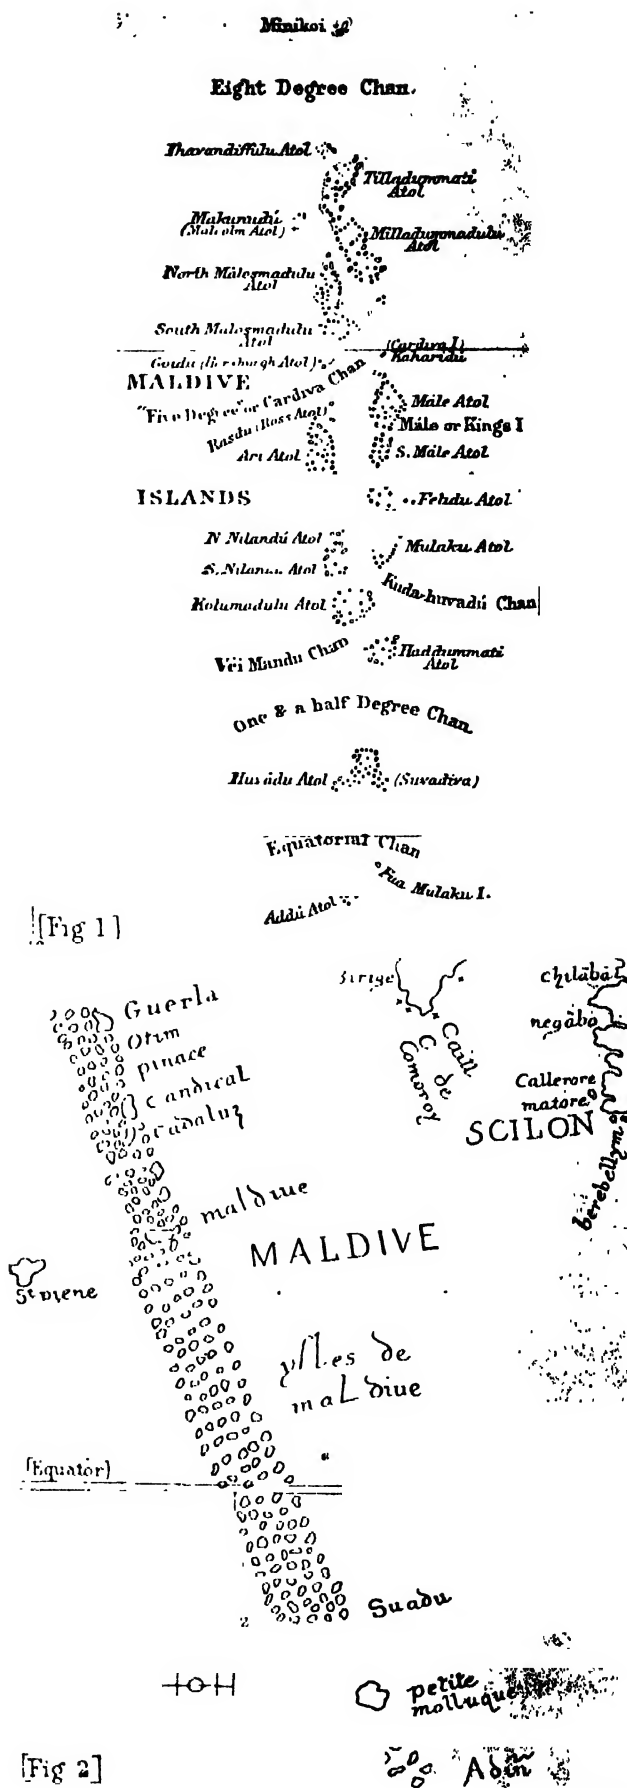 Minikoi
Eight Degree Chan.
Ihavandiffulu Atol
Tilladummati
Atol
Makunudú
(Malcolm Atol)
Milladummadulu
Atol
North Málosmadulu
Atol
South Malosmadulu
Atol
(Cardiva I)
Kaharidú
Goidu (Horsburgh Atol)
MALDIVE
"Five Degree" or Cardiva Chan
Rasdu (Ross Atol)
Ari Atol
Mále Atol
Mále or Kings I
S. Mále Atol
ISLANDS
Felidu Atol
N Nilandú Atol
S. Nilandu Atol
Mulaku Atol
Kolumadulu Atol
Kuda-huvadú Chan
Véi Mandu Chan
Haddummati
Atol
One & a half Degree Chan.
Huvadu Atol
(Suvadiva)
Equatorial Chan
Fua Mulaku I.
Addú Atol
[Fig 1]
Guerla
Otim
pinace
Candical
cadaluz
maldiue
sirige
C. de
Comoroy
chilābal
negābo
Callerore
matore
SCILON
berebellym
MALDIVE
ylles de
maldiue
[Equator]
Suadu
2
petite
molluque
[Fig 2]